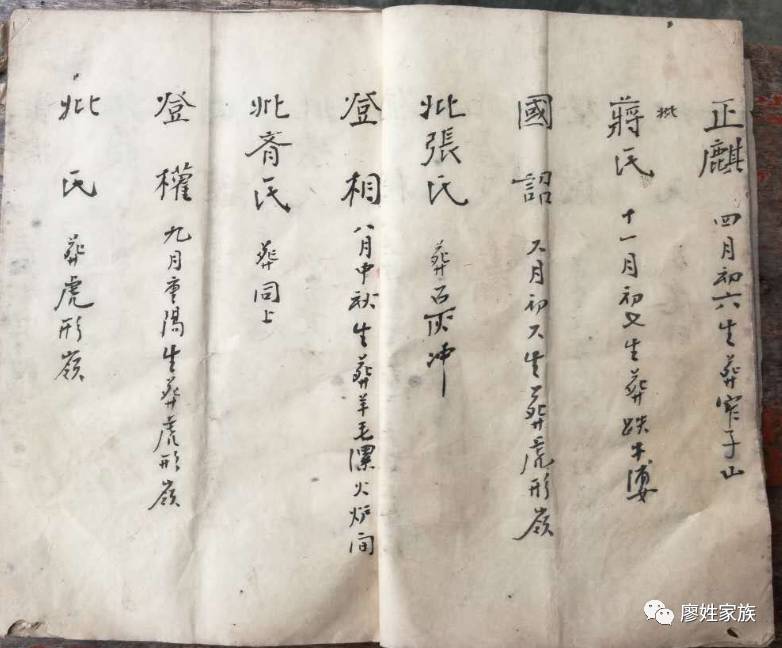 正麒 四月初六生葬窄子山
妣蔣氏 十一月初七生葬跌牛
國詔 八月初八生葬虎形嶺
妣張氏 葬石灰冲
登相 八月中秋生葬羊毛漯火炉间
妣胥氏 葬同上
登權 九月重陽生葬虎形嶺
妣氏 葬虎形嶺
廖姓家族